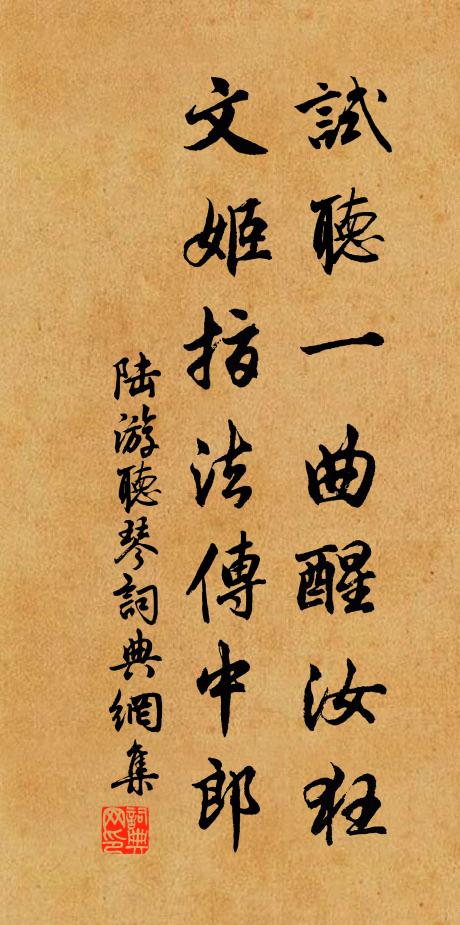 試聽一曲醒汝狂
文姬指法傳中郎
陸游聽琴詞典網集
詞典网印